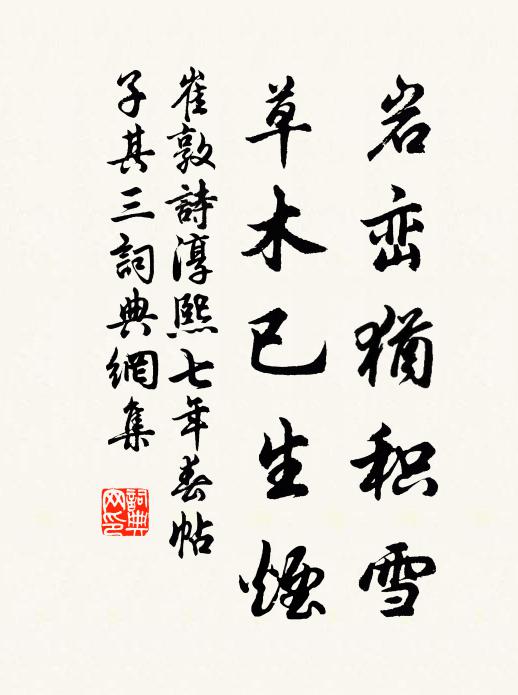 岩峦犹积雪
草木已生煙
崔敦詩淳熙七年春帖
子其三詞典網集
詞典網印